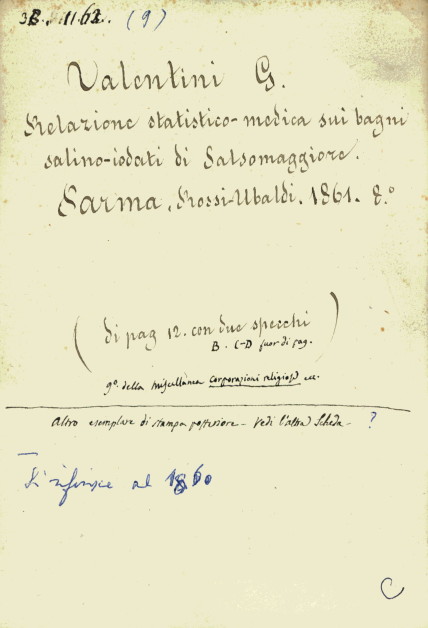 3B. 1162. (9)
Valentini G.
Relazione statistico-medica sui bagni
salino-iodati di Salsomaggiore.
Parma, Rossi-Ubaldi. 1861. 8.º
(di pag 12. con due specchi)
B. C-D fuor di pag.
9º. della miscellanea Corporazioni religiose ecc.
Altro esemplare di stampa posteriore - Vedi l'altra Scheda - ?
Si riferisce al 1860
C